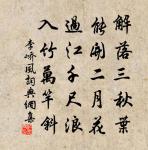 解落三秋葉
能開二月花
過江千尺浪
入竹萬竿斜
李嶠風詞典網集